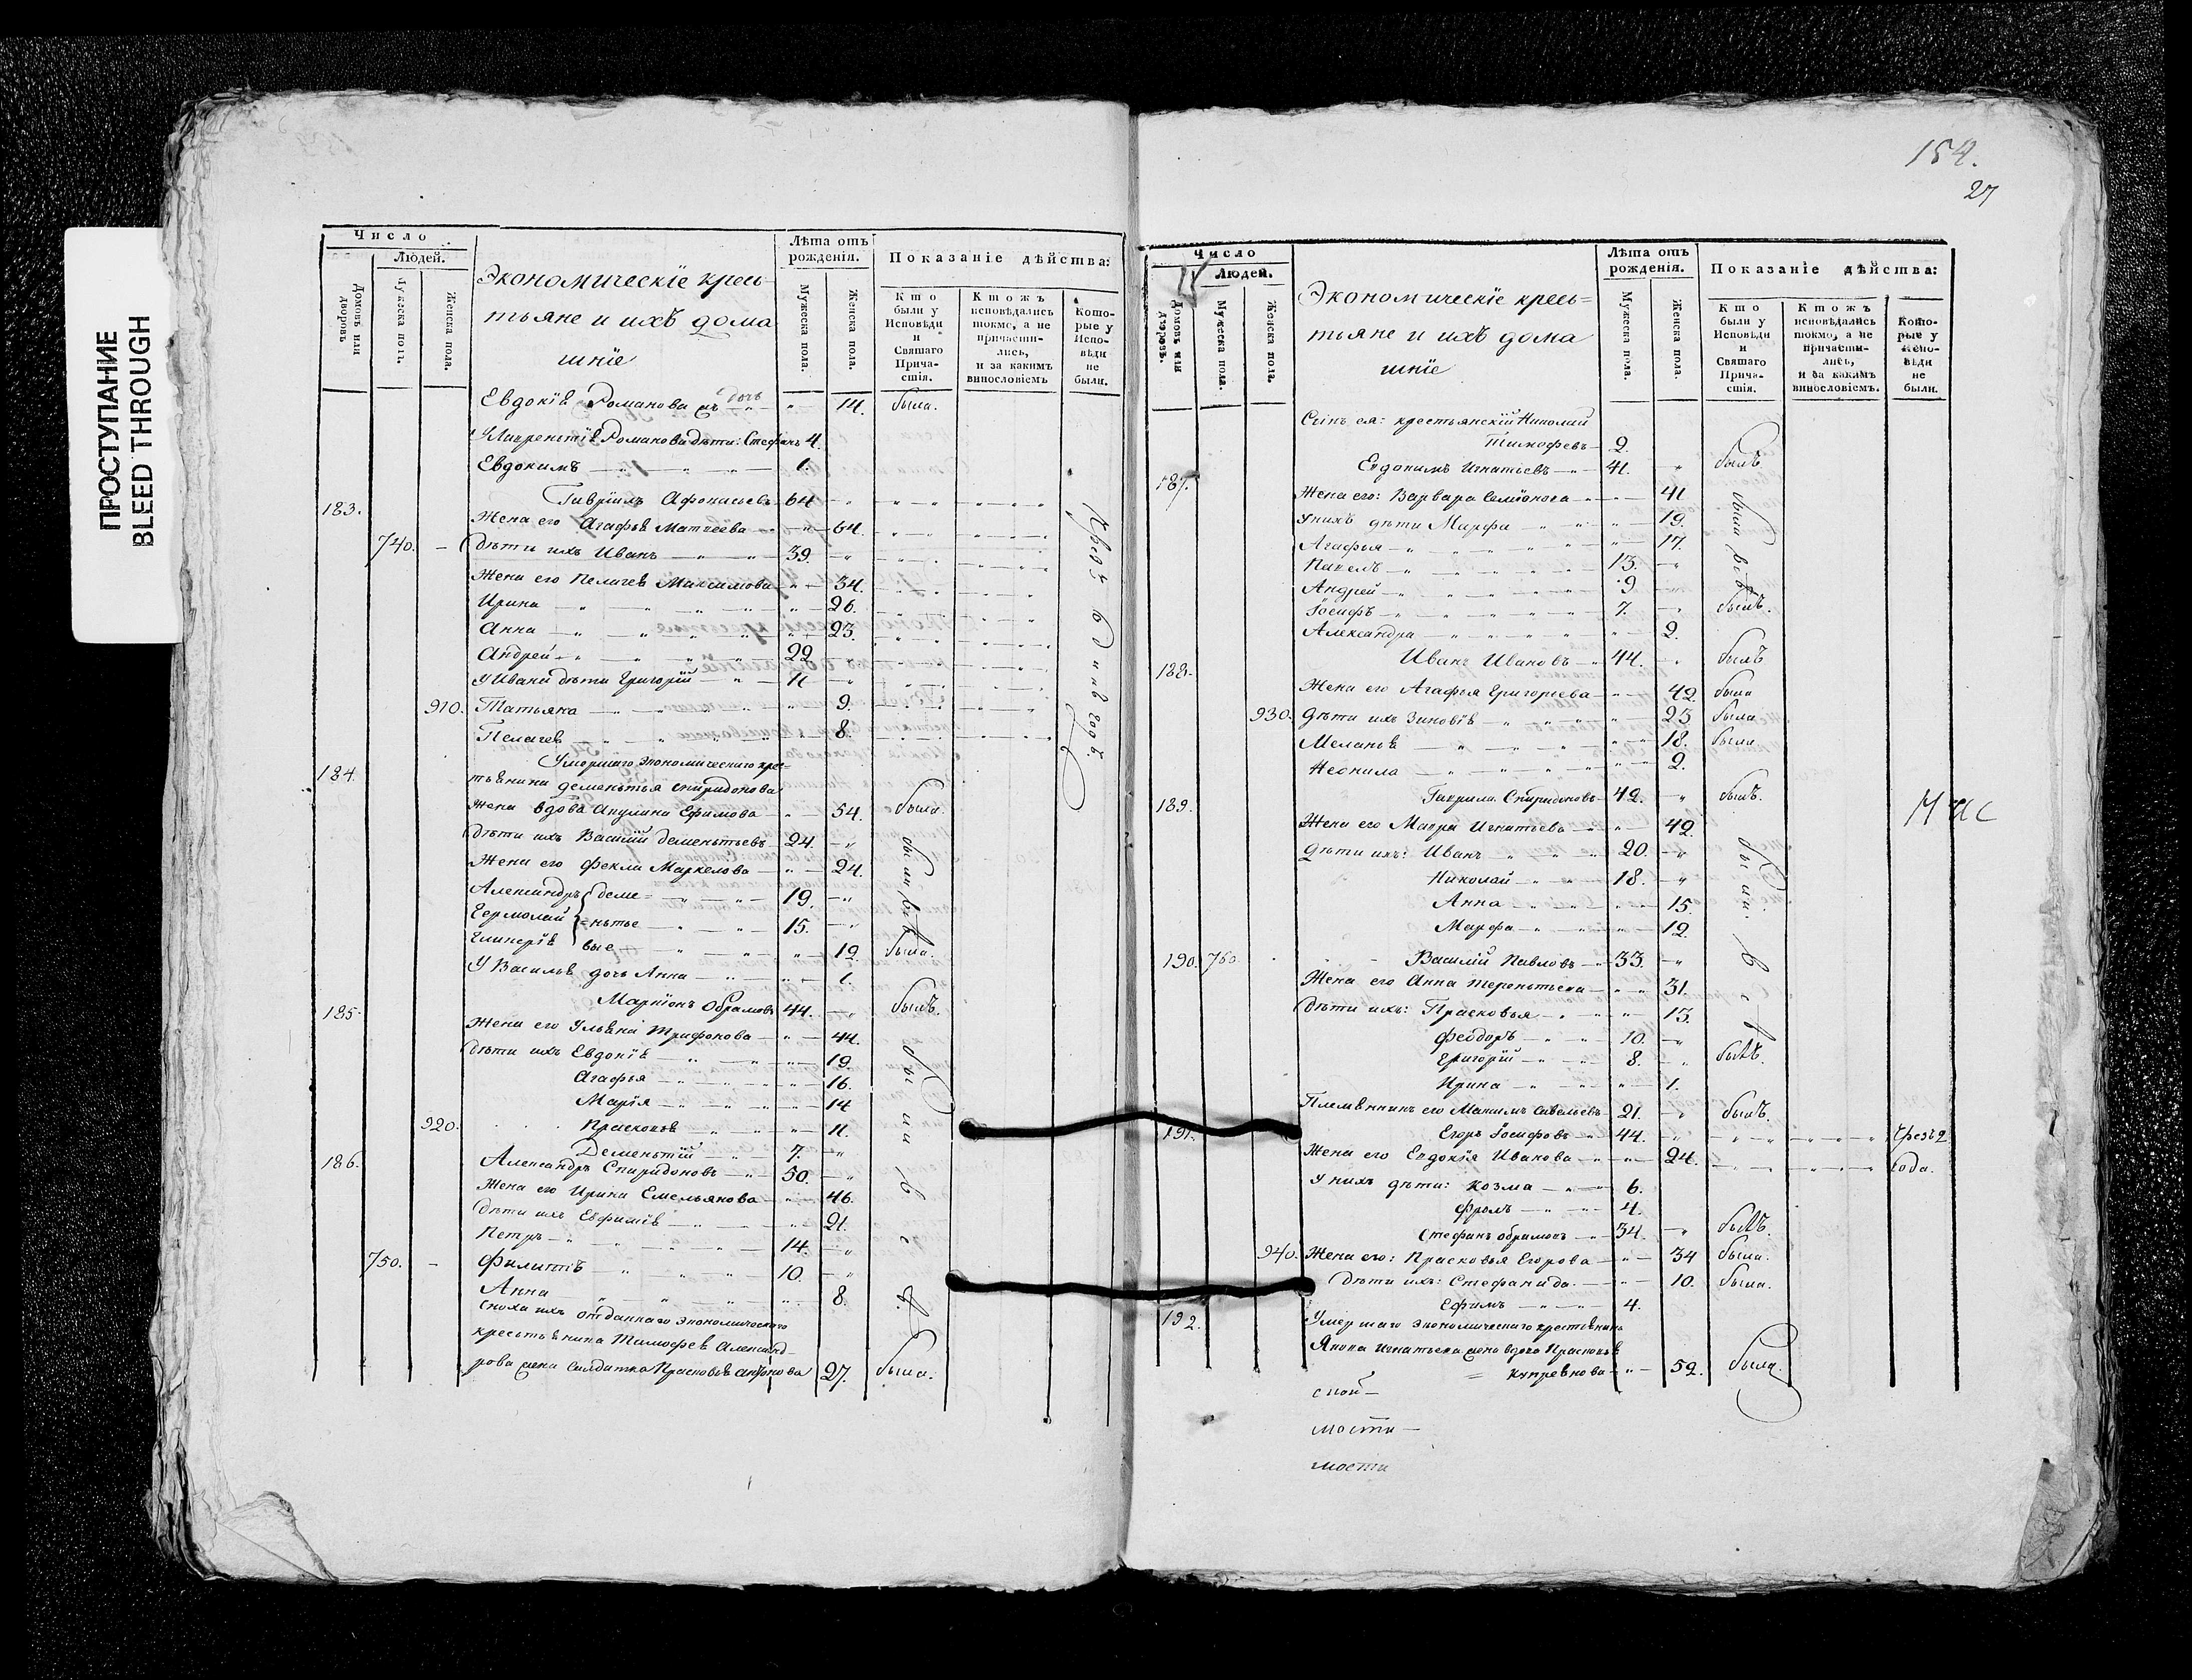 ПРОСТУПАНИЕ
BLEED THROUGH
Число
Людей.
Домовъ или дворовъ
Мужеска полъ.
Женска пола.
Экономическїе кресь-
тьяне и ихъ дома
шнїе
Лѣта отъ рожденія.
Мужеска пола.
Женска пола.
Показаніе дѣйства:
Кто были у Исповѣди и Святаго Причастія.
Ктожъ исповѣдались токмо, а не причастились, и за какимъ винословіемъ
Которые у Исповѣди не были.
Евдокїѣ Романова дочь 14. была.
Романова дѣти: Стефанъ 4.
Евдокимъ 1.
183. Гаврїилъ Афонасьевъ 64
Жена его Агафьѣ Матвеева 64.
740. Дѣти ихъ Иванъ 39.
Жена его Пелагеѣ Максимова 34.
Ирина 26.
Анна 23.
Андрей 22
У Ивана дѣти Григорїй 11
910. Татьяна 9.
Пелагеѣ 8.
184. Умершаго Экономическаго крес-
тьѣнина Дементья Спиридонова
Жена вдова Акулина Ефимова 54. была.
Дѣти ихъ Василїй Дементьевъ 24.
Жена его Фекла Маркелова 24.
Александръ деме- 19.
Еермолай нтье 15.
Гликерїѣ вые 12. была.
У Васильѣ дочь Анна 1.
185. Маркїонъ Обрамовъ 44. былъ.
Жена его Ульѣна Трифонова 44.
Дѣти ихъ Евдокїѣ 19.
Агафья 16.
Марїя 14
920. Прасковьѣ 11.
Дементїй 7.
186. Александръ Спиридоновъ 50.
Жена его Ирина Емельянова 46.
Дѣти ихъ Евфимїѣ 21.
Петръ 14.
750. Филиппъ 10.
Анна 8.
Сноха ихъ отданнаго Экономическаго
крестьѣнина Тимофеѣ Александ-
рова жена солдатка Прасковьѣ Антонова 27. была.
154.
27
Число
Людей.
Домовъ или дворовъ.
Мужеска пола.
Женска пола.
Экономическїе кресь=
тьяне и ихъ дома
шнїе
Лѣта отъ рожденія.
Мужеска пола.
Женска пола.
Показаніе дѣйства:
Кто были у Исповѣди и Святаго Причастія.
Ктожъ исповѣдались токмо, а не причастились, и за какимъ винословіемъ.
Которые у Исповѣди не были.
Сынъ ея: крестьянскїй Николай
Тимофеевъ 2.
187. Евдокимъ Игнатїевъ 41. былъ
Жена его: Варвара Семїонова 41
У нихъ дѣти Марфа 19.
Агафья 17.
Павелъ 13.
Андрей 9
Іосифъ 7. былъ.
Александра 2.
188. Иванъ Ивановъ 44. былъ
Жена его Агафья Григорьева 42. была
930. Дѣти ихъ Зиновїѣ 23 была
Меланьѣ 18. была
Неонила 2.
189. Гаврила Спиридоновъ 42. былъ.
Жена его Мавра Игнатьева 42.
Дѣти ихъ: Иванъ 20.
Николай 18.
Анна 15.
Марфа 12.
190. 760 Василїй Павловъ 33.
Жена его Анна Терентьева 31.
Дѣти ихъ: Прасковья 13.
Феодоръ 10.
Григорїй 8. былъ.
Ирина 1.
Племѣнникъ его Максимъ Савельевъ 21. былъ.
191. Егоръ Іосифовъ 44. Чрезъ 2
Жена его Евдокїя Иванова 24. года.
У нихъ дѣти: Козма 6.
Фролъ 4.
Стефанъ Обрамовъ 34. былъ.
940. Жена его: Прасковья Егорова 34 была.
Дѣти ихъ: Стефанида 10. была.
Ефимъ 4.
192. Умершаго Экономическаго крестьѣнина
Якова Игнатьева жена вдова Прасковьѣ
Купреѣнова 52. была
мости
мости